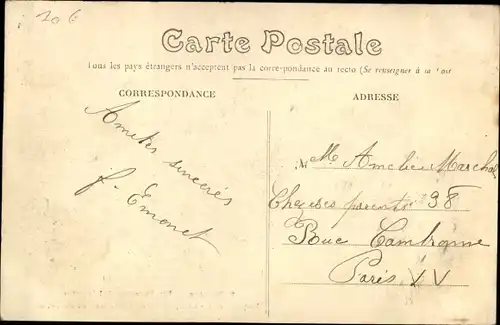 20 €
Carte Postale
Tous les pays étrangers n'acceptent pas la correspondance au recto (Se renseigner à la
CORRESPONDANCE
ADRESSE
Amitiés sincères
J. Emonet
M
Me Amelie Marchal
Chez ses parents 98
Rue Cambronne
Paris XV